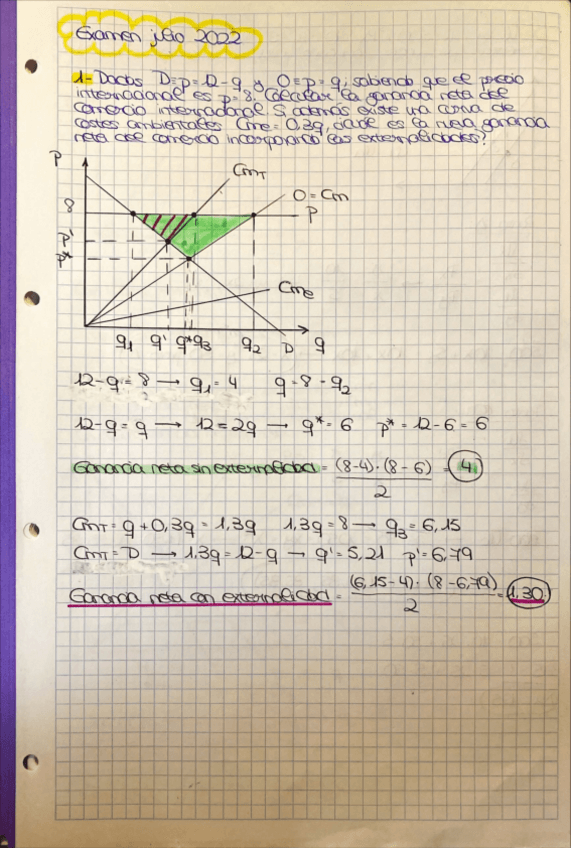 Examen julio 2022
1- Dadas D≡p=12-q y O≡p=q, sabiendo que el precio
internacional es p=8. Calcular la ganancia neta del
comercio internacional. Si además existe una curva de
costes ambientales Cme=0,3q, ¿cuál es la nueva ganancia
neta del comercio incorporando las externalidades?
P
CmT
O=Cm
8
P
p'
p*
Cme
q1 q' q* q3 q2 D q
12-q=8 → q1=4 q=8=q2
12-q=q → 12=2q → q*=6 p*=12-6=6
Ganancia neta sin externalidad = (8-4)·(8-6) / 2 = 4
CmT=q+0,3q=1,3q 1,3q=8 → q3=6,15
CmT=D → 1,3q=12-q → q'=5,21 p'=6,79
Ganancia neta con externalidad = (6,15-4)·(8-6,79) / 2 = 1,30